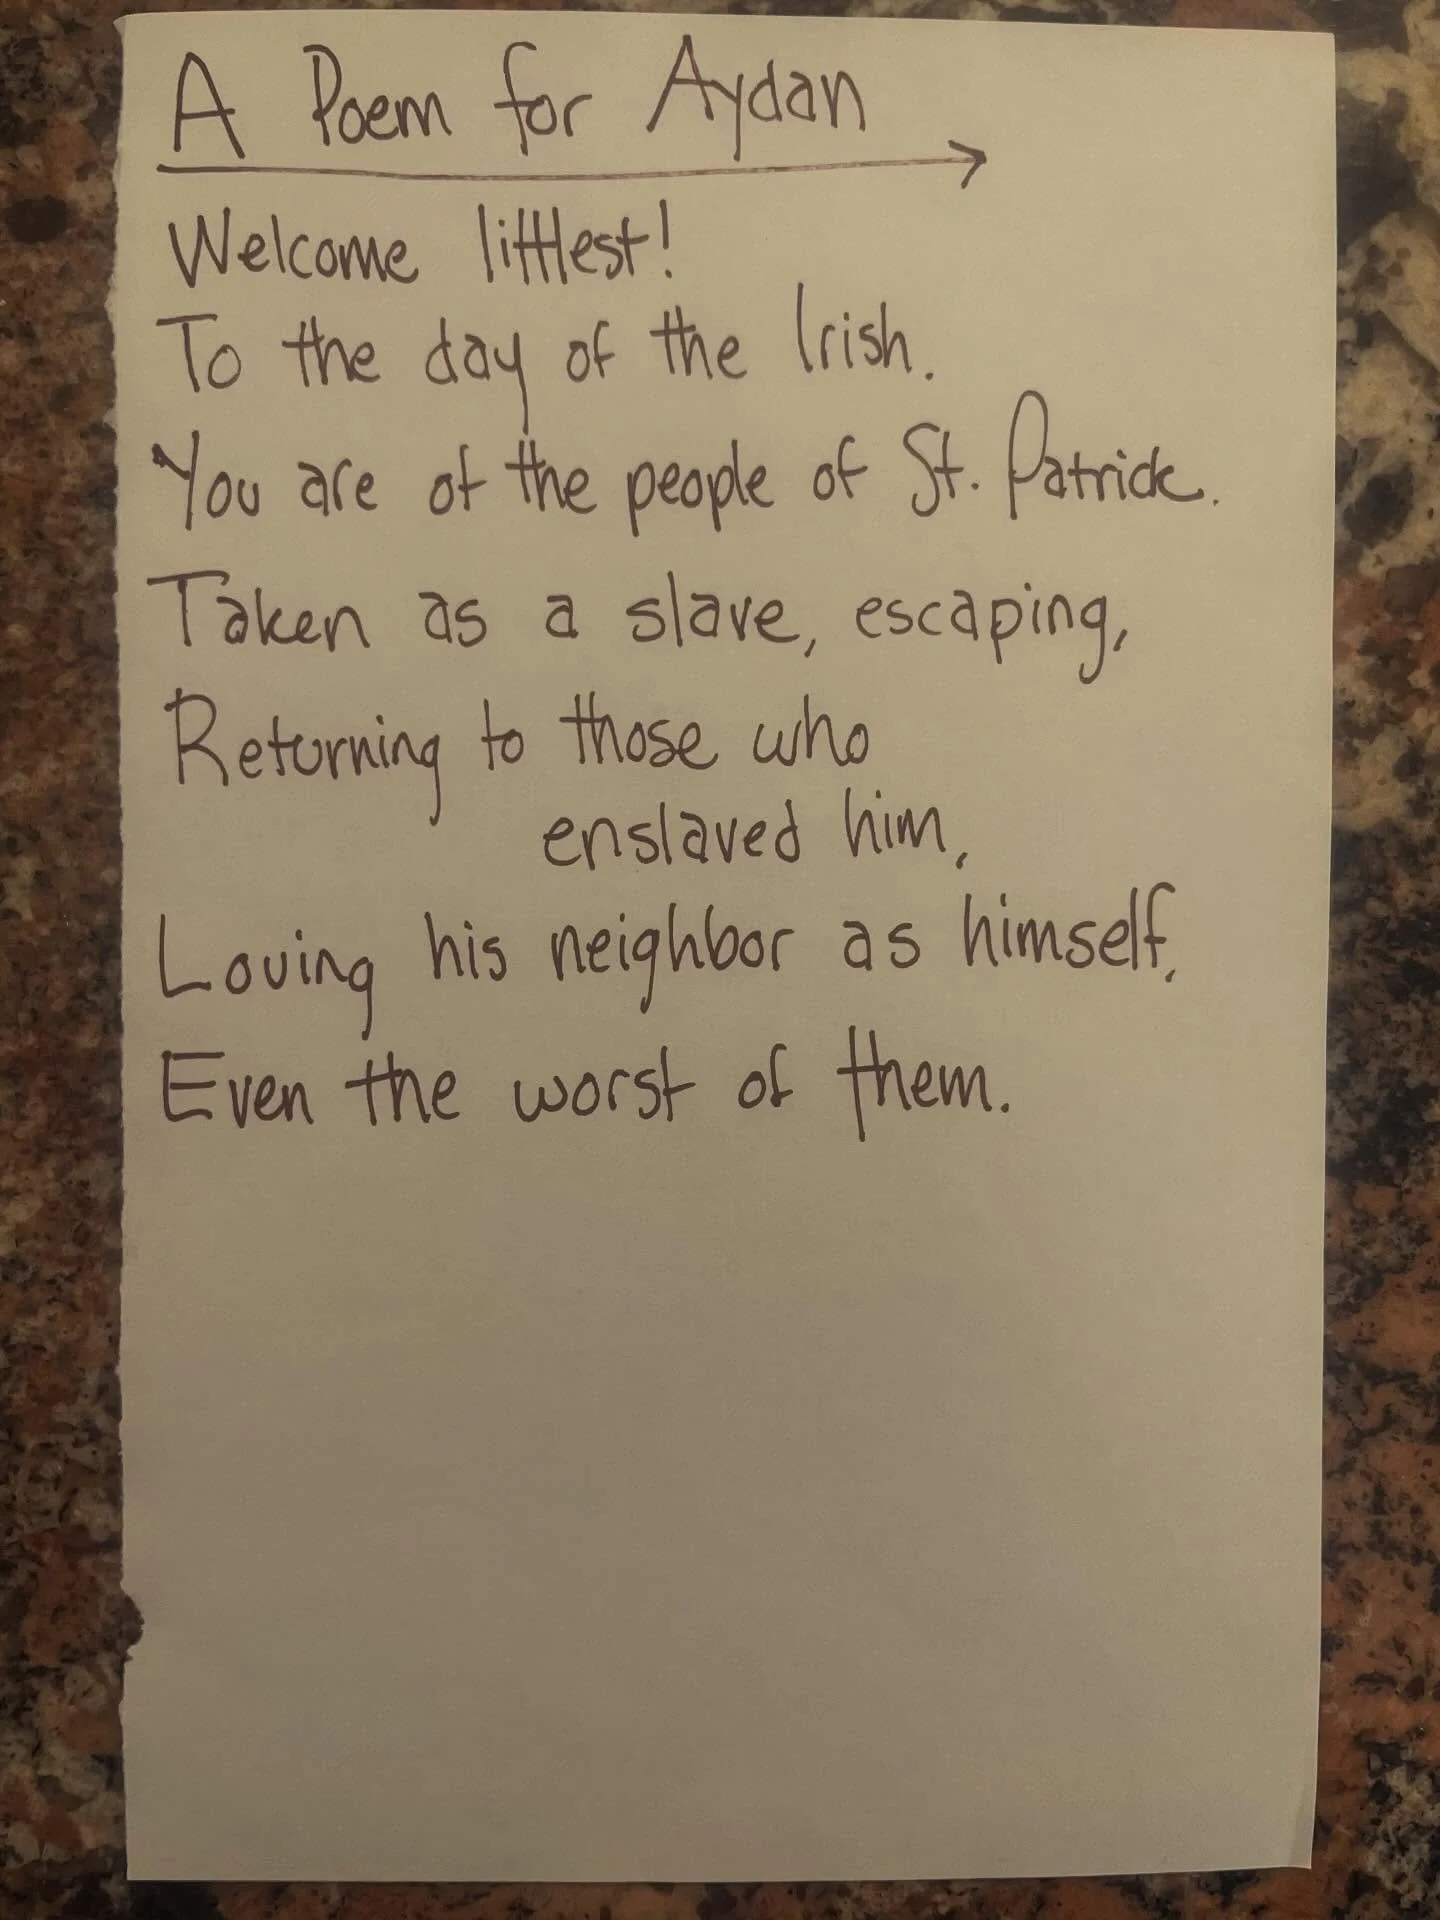 A Poem for Aydan
Welcome littlest!
To the day of the Irish.
You are of the people of St. Patrick.
Taken as a slave, escaping,
Returning to those who
enslaved him,
Loving his neighbor as himself,
Even the worst of them.